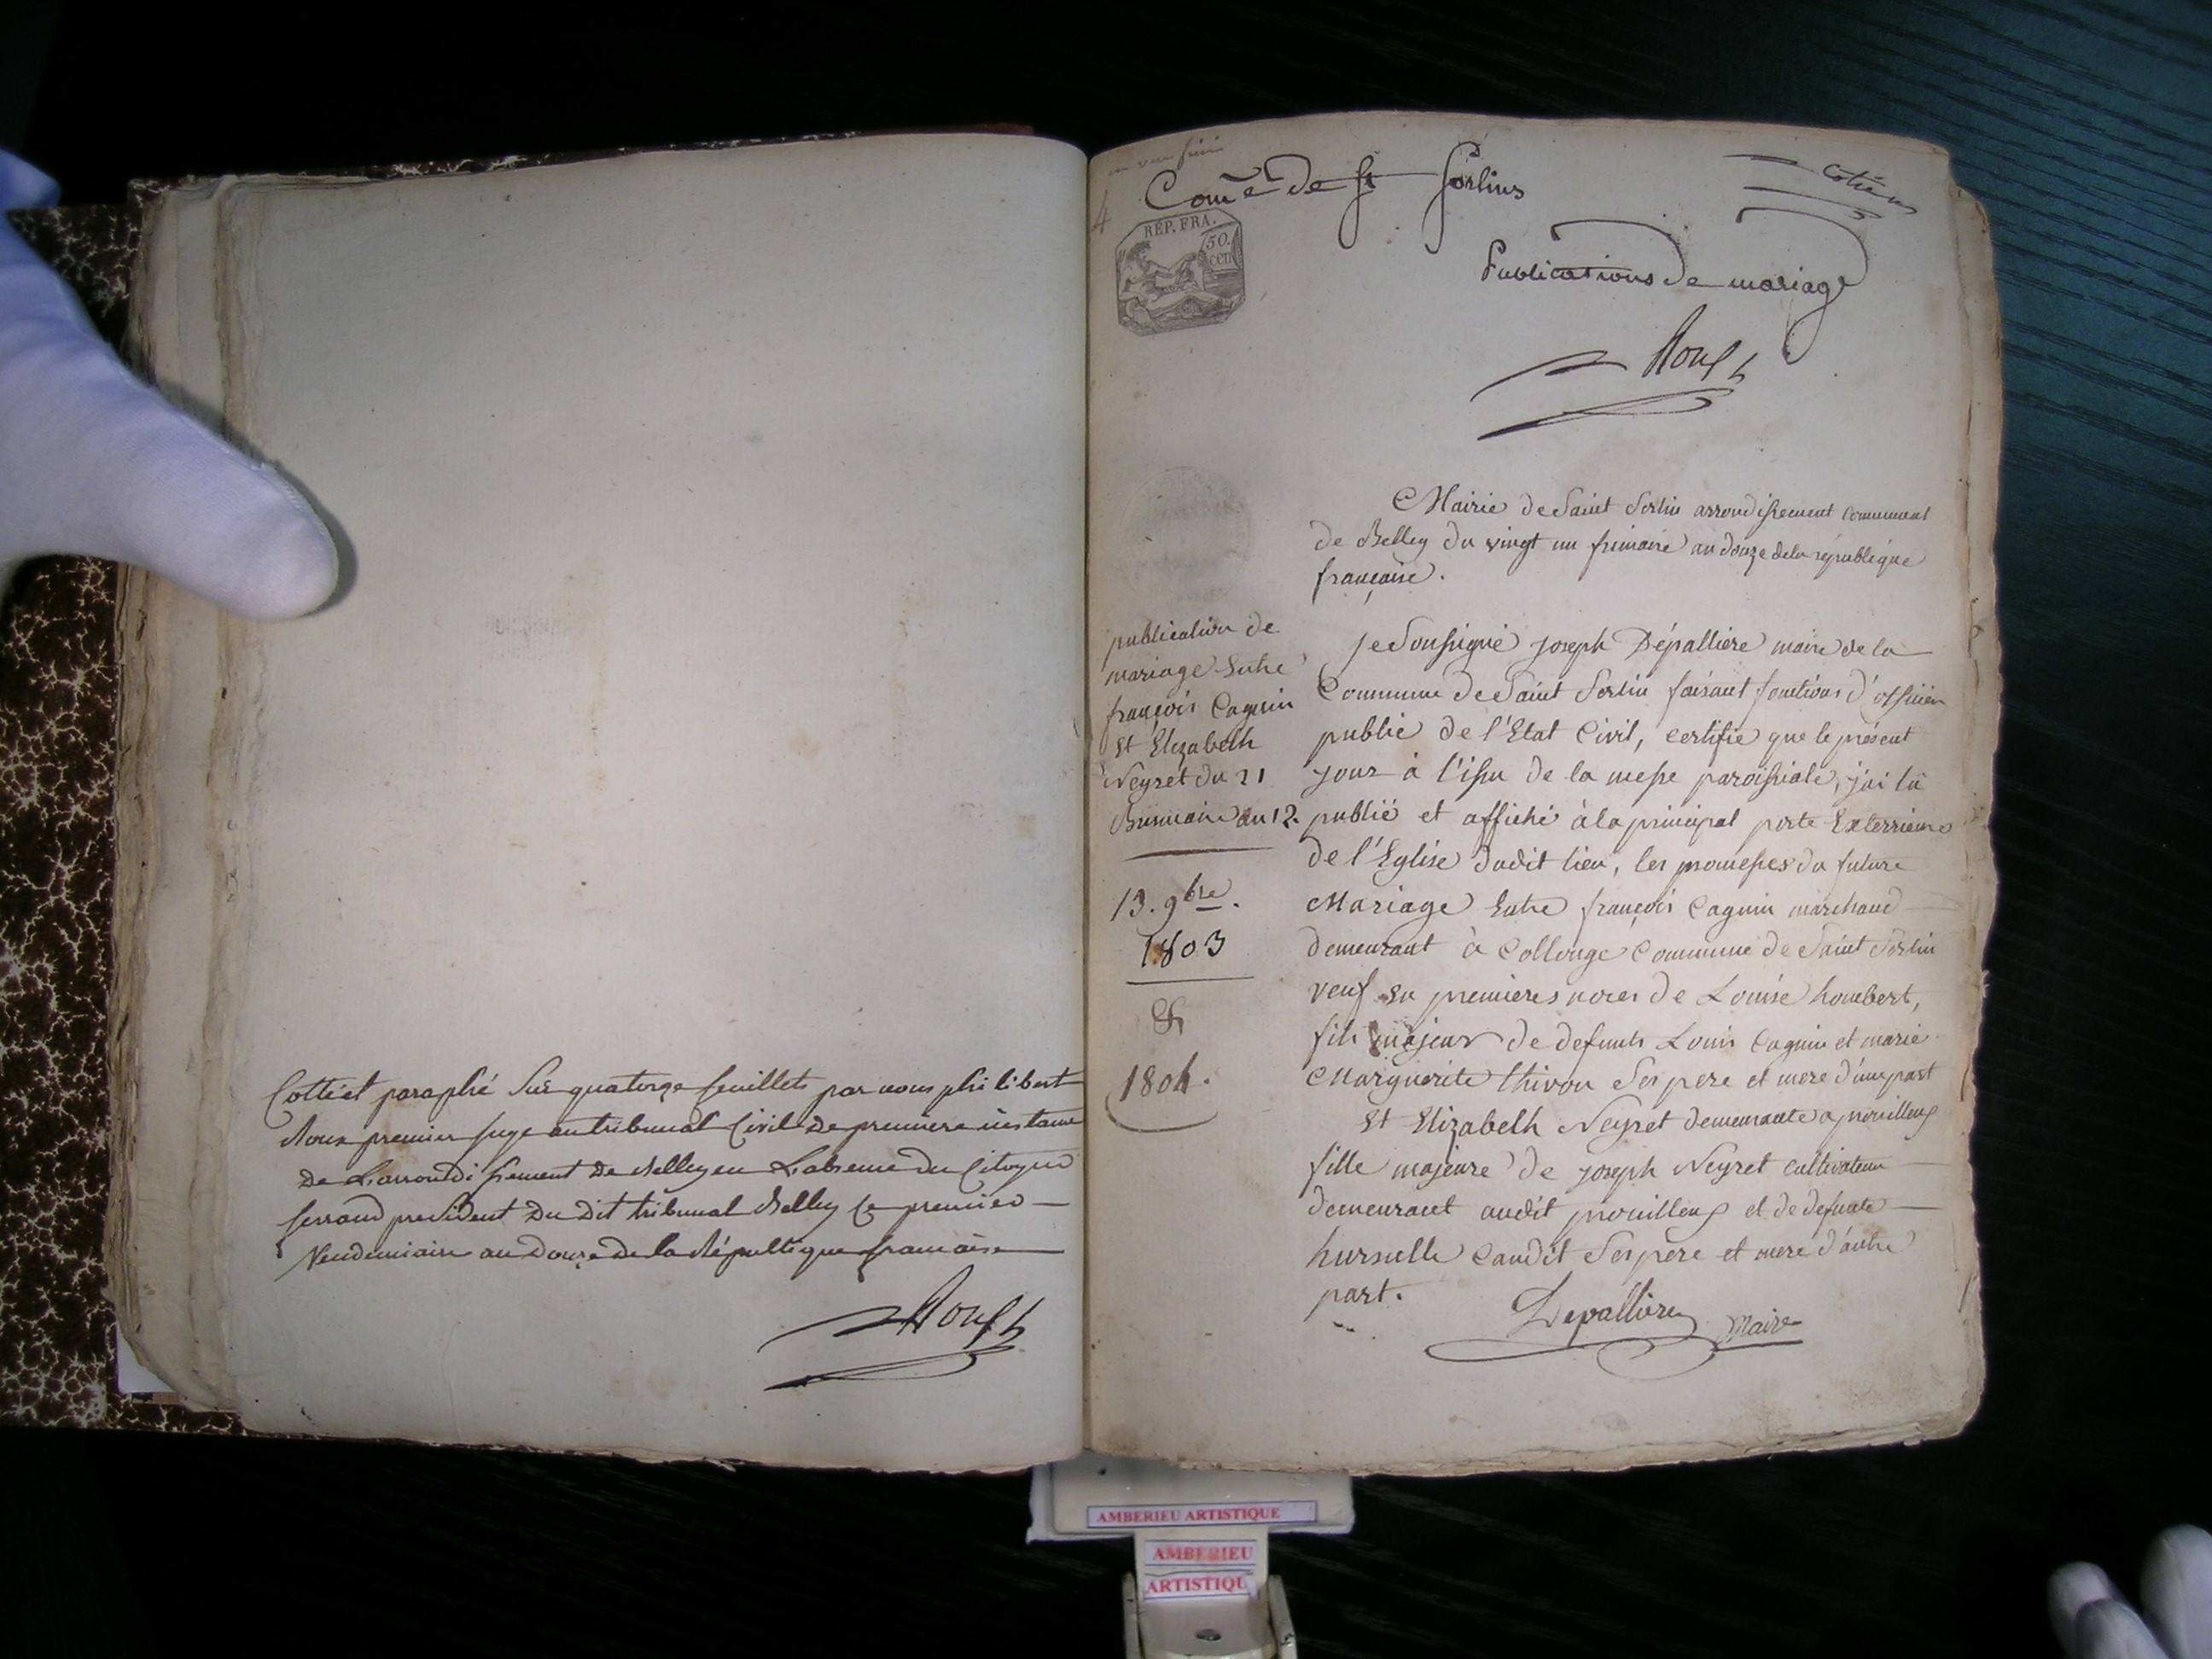 Cotté et paraphé Sur quatorze feuillets par nous philibert
Roux premier juge au tribunal Civil de premiere instance
De L'arrondissement de Belley en L'absence du Citoyen
ferrand president Du Dit tribunal Belley Le premier
Vendemiaire an Douze De la République francaise
Roux
4
Comᵉ De St Sorlins
RÉP. FRA.
50.
cen
Publications De mariage
Roux
Mairie de Saint Sorlin arrondissement communal
de Belley du vingt un frimaire an douze de la république
française.
publication de
mariage Entre
françois Caguin
Et Elizabeth
Neyret du 21
Brumaire an 12.
13. 9bre.
1803
&
1804.
je Soussigné joseph Dépallière maire de la
Commune de Saint Sorlin faisant fonctions d'officier
public de l'Etat Civil, certifie que le présent
jour à l'issu de la messe paroissiale, j'ai lû
publié et affiché à la principal porte Exterrieure
de l'Eglise dudit lieu, les promesses du future
Mariage Entre françois Caguin marchand
demeurant à Collonge Commune de Saint Sorlin
veuf En premieres noces de Louise houmbert,
fils majeur de defunts Louis Caguin et marie
Marguerite thivon Ses pere et mere d'une part
Et Elizabeth Neyret demeurante a prouilleup
fille majeure de joseph Neyret cultivateur
demeurant audit prouilleup et de defunte
hursulle Caudit Ses père et mere d'autre
part.
Depallière Maire
AMBERIEU ARTISTIQUE
AMBERIEU
ARTISTIQU